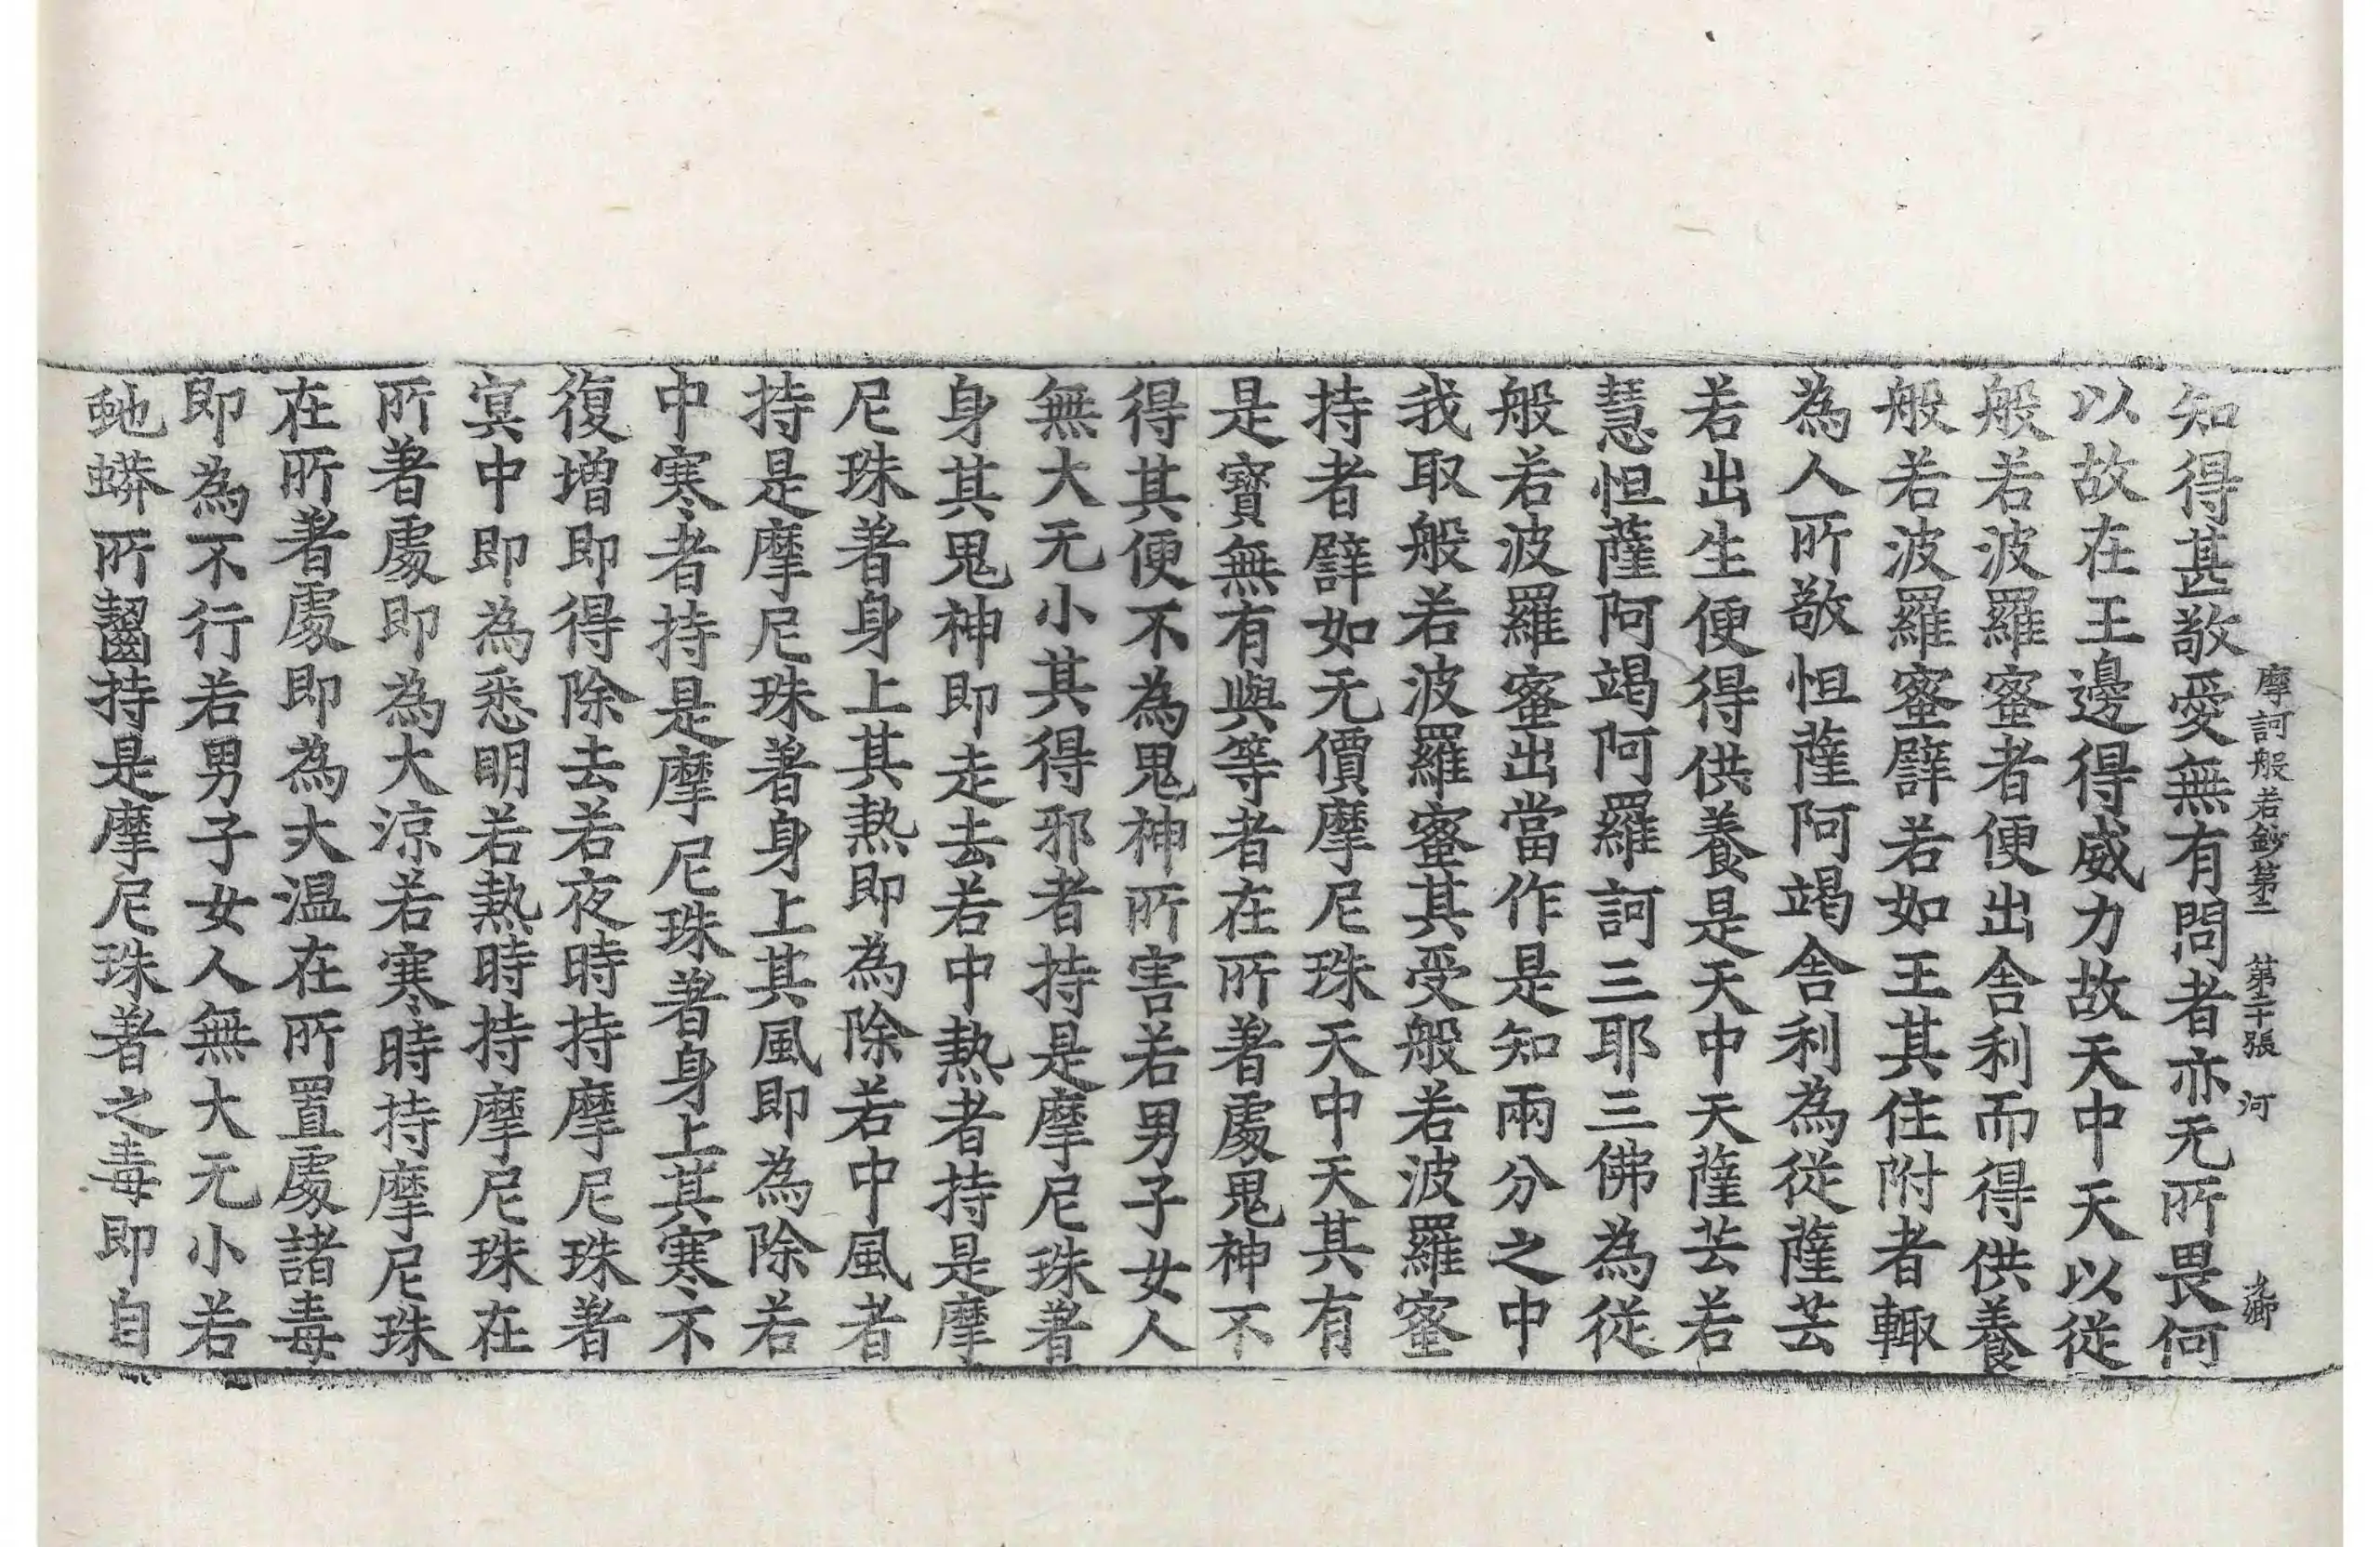 摩訶般若鈔第二 第二十張 河
知得甚敬愛無有問者亦无所畏何
以故在王邊得威力故天中天以從
般若波羅蜜者便出舍利而得供養
般若波羅蜜譬若如王其住附者輙
為人所敬怛薩阿竭舍利為從薩芸
若出生便得供養是天中天薩芸若
慧怛薩阿竭阿羅訶三耶三佛為從
般若波羅蜜出當作是知兩分之中
我取般若波羅蜜其受般若波羅蜜
持者譬如无價摩尼珠天中天其有
是寶無有與等者在所著處鬼神不
得其便不為鬼神所害若男子女人
無大无小其得邪者持是摩尼珠著
身其鬼神即走去若中熱者持是摩
尼珠著身上其熱即為除若中風者
持是摩尼珠著身上其風即為除若
中寒者持是摩尼珠著身上其寒不
復增即得除去若夜時持摩尼珠著
冥中即為悉明若熱時持摩尼珠在
所著處即為大涼若寒時持摩尼珠
在所著處即為大温在所置處諸毒
即為不行若男子女人無大无小若
虵蟒所齧持是摩尼珠著之毒即自